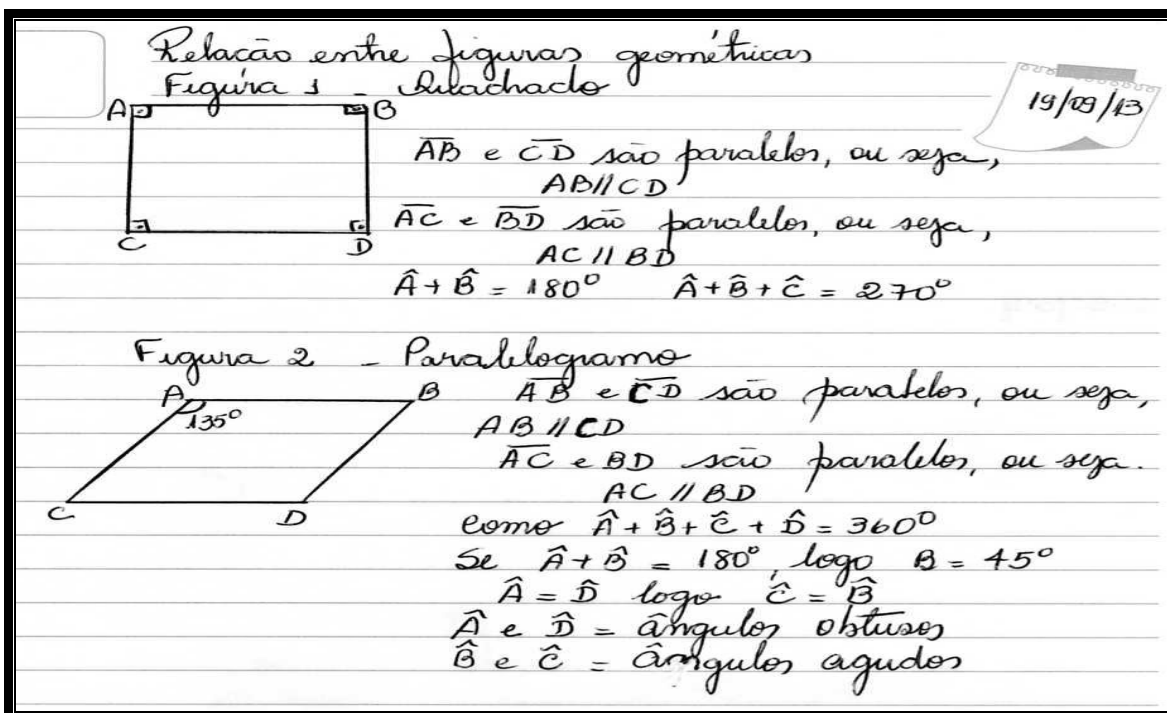 Relacão entre figuras geométricas
Figura 1 - Quachado
19/09/13
A B
AB e CD são paralelos, ou seja,
AB//CD
AC e BD são paralelos, ou seja,
C D
AC // BD
Â + B̂ = 180° Â + B̂ + Ĉ = 270°
Figura 2 - Paralelogramo
A B
135°
AB e CD são paralelos, ou seja,
AB // CD
AC e BD são paralelos, ou seja.
AC // BD
C D
como Â + B̂ + Ĉ + D̂ = 360°
Se Â + B̂ = 180°, logo B = 45°
Â = D̂ logo Ĉ = B̂
Â e D̂ = ângulos obtusos
B̂ e Ĉ = ângulos agudos